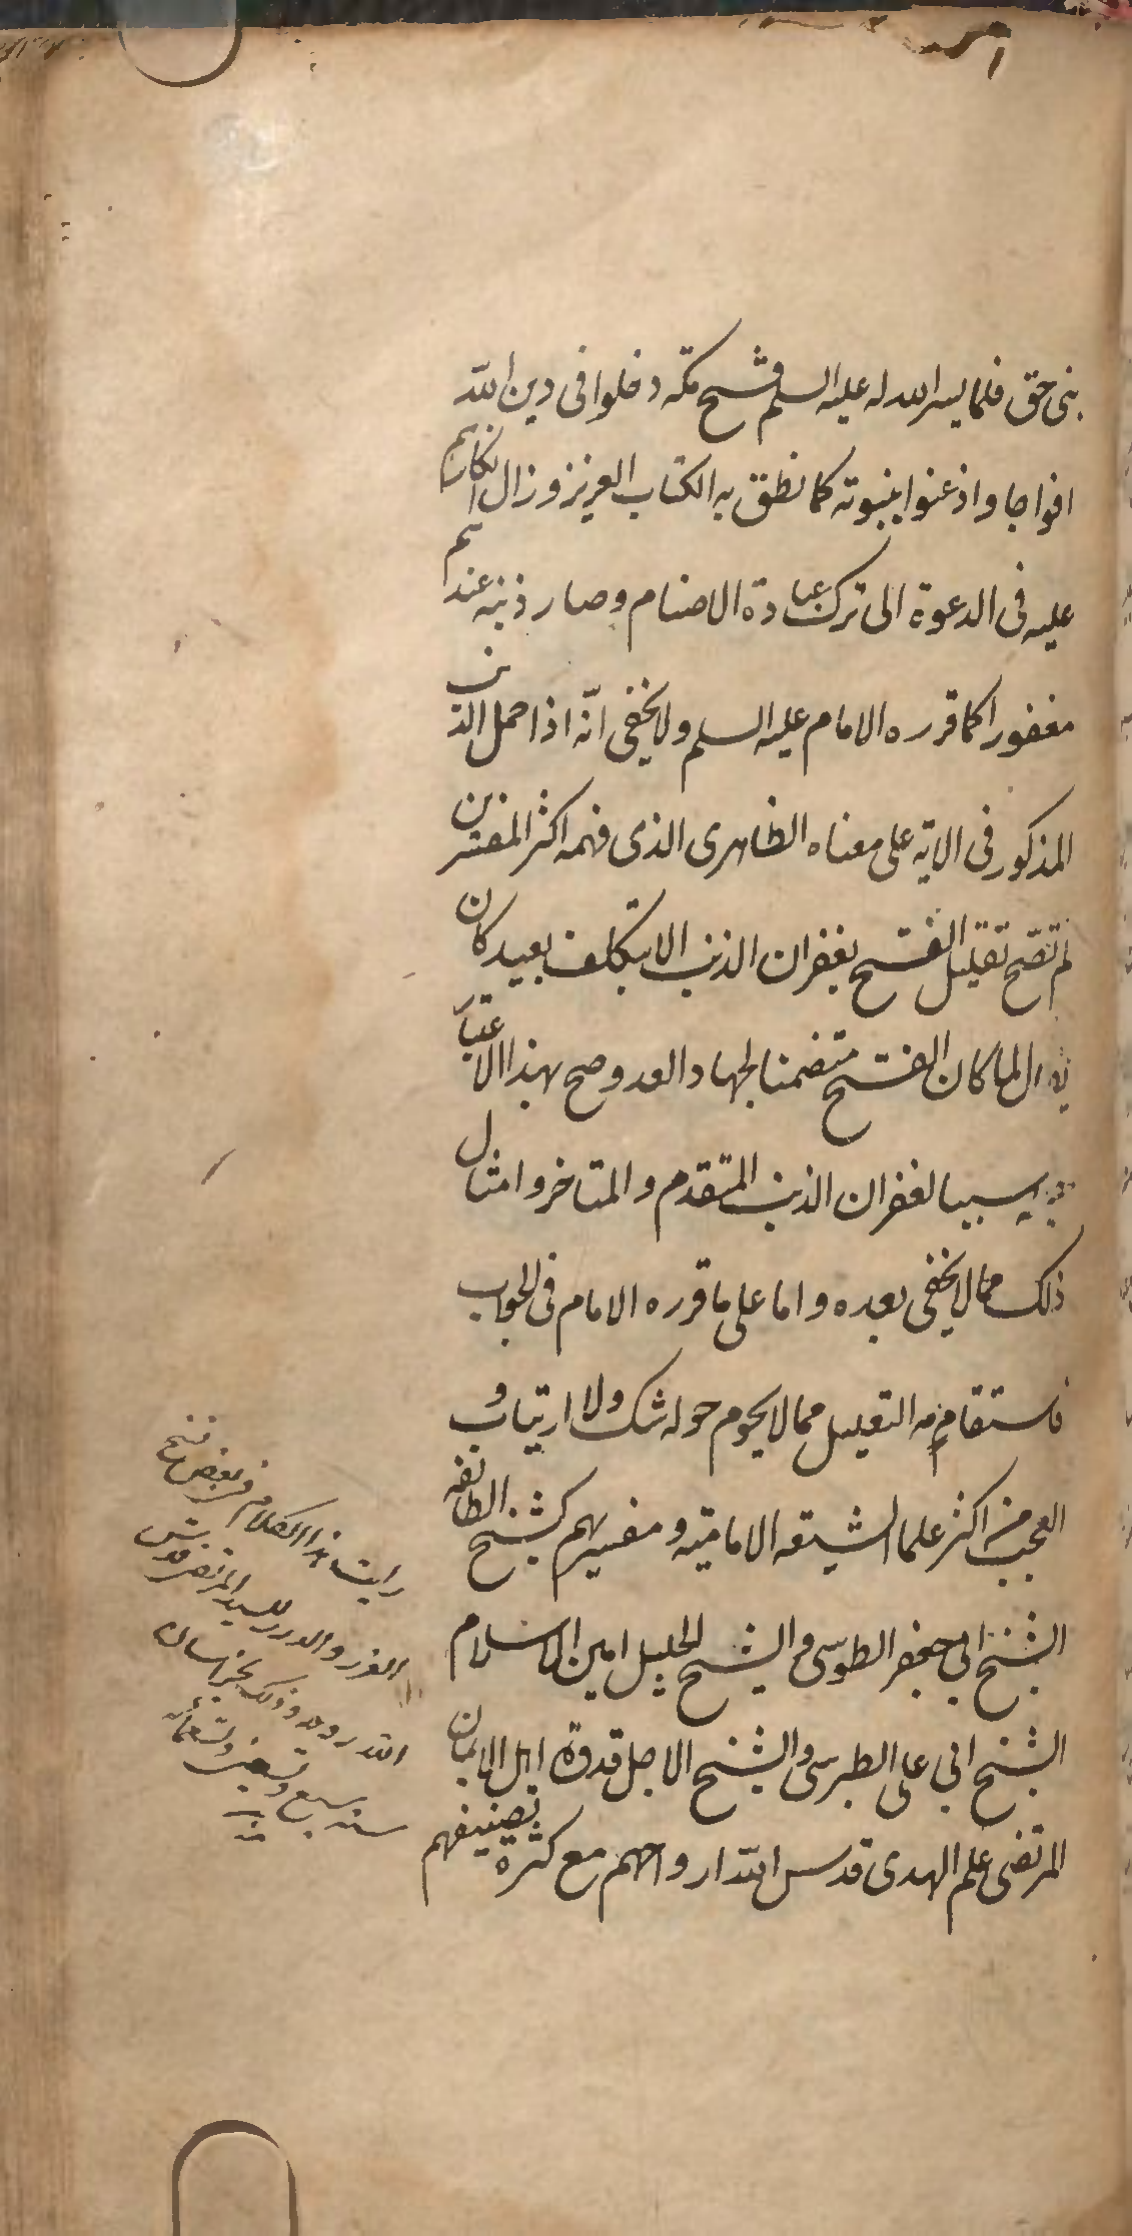 بنى حق فلما يسر الله له عليه السلم فتح مكة دخلوا فى دين الله
افواجا واذعنوا بنبوته كما نطق به الكتاب العزيز وزال انكارهم
عليه فى الدعوة الى ترك عبادة الاصنام وصار ذنبه عندهم
مغفورا كما قرره الامام عليه السلم ولا يخفى انّه اذا حمل الذنب
المذكور فى الاية على معناه الظاهرى الذى فهمه اكثر المفسرين
لم تصح تعليل الفتح بغفران الذنب الا بتكلف بعيد كان
يقال لما كان الفتح متضمنا لجهاد العدو صح بهذا الاعتبار
سببا لغفران الذنب المتقدم والمتاخر وامثال
ذلك مما لا يخفى بعده واما على ما قرره الامام فى الجواب
فاستقامة التعليل مما لا يحوم حوله شك ولا ارتياب و
العجب من اكثر علما الشيعه الاماميه ومفسريهم كشيخ الطائفه
الشيخ ابى جعفر الطوسى والشيخ الجليل امين الاسلام
الشيخ ابي على الطبرسى والشيخ الاجل قدوة اهل الايمان
المرتضى علم الهدى قدس الله ارواحهم مع كثرة تصنيفهم
رايت هذا الكلام فى بعض نسخ
الغرر والدرر للسيد المرتضى قدس
الله روحه وذلك بخراسان
سنة سبع وتسعين وتسعمائه
منه